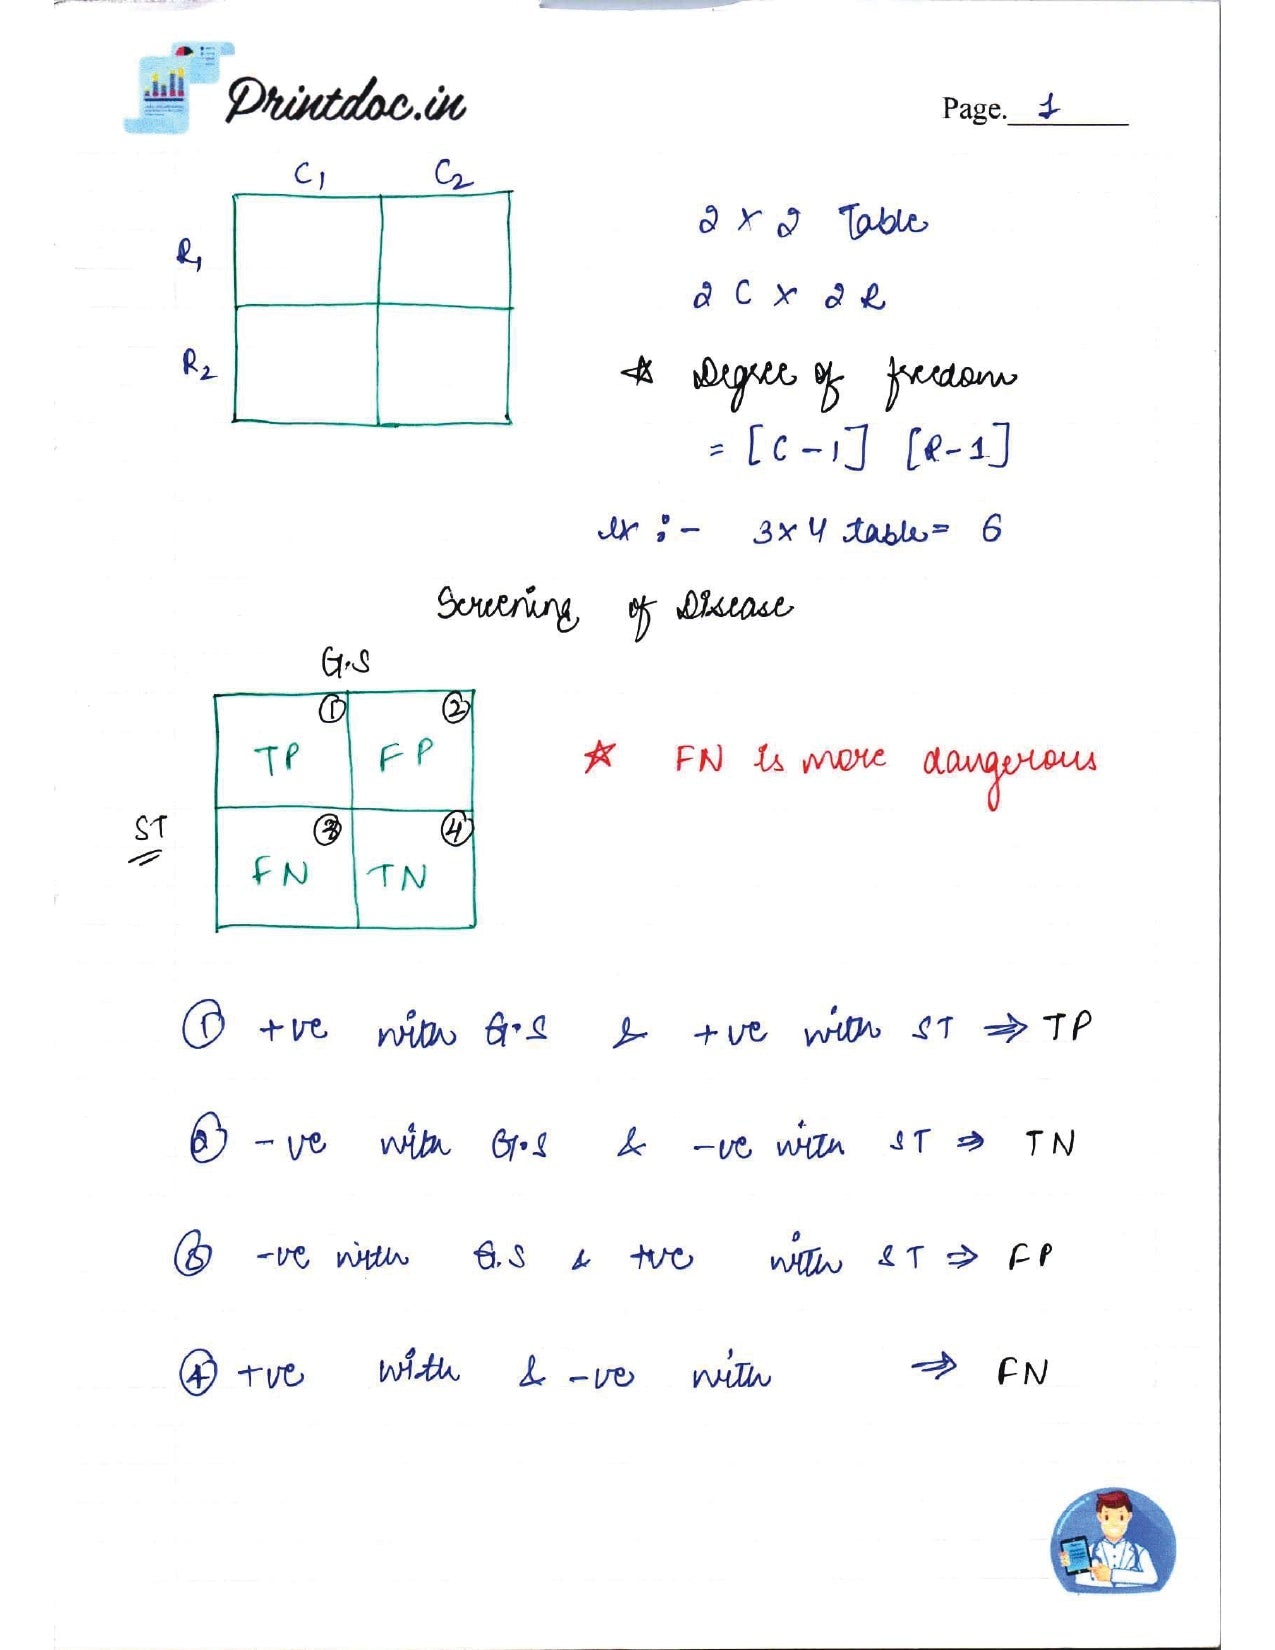 Printdoc.in
Page. 1
C1 C2
R1
R2
2 x 2 Table
2 C x 2 R
☆ Degree of freedom
= [C - 1] [R - 1]
ex :- 3 x 4 table = 6
Screening of Disease
G.S
① ②
TP FP
ST
③ ④
FN TN
☆ FN is more dangerous
① +ve with G.S & +ve with ST ⇒ TP
② -ve with G.S & -ve with ST ⇒ TN
③ -ve with G.S & +ve with ST ⇒ FP
④ +ve with & -ve with ⇒ FN